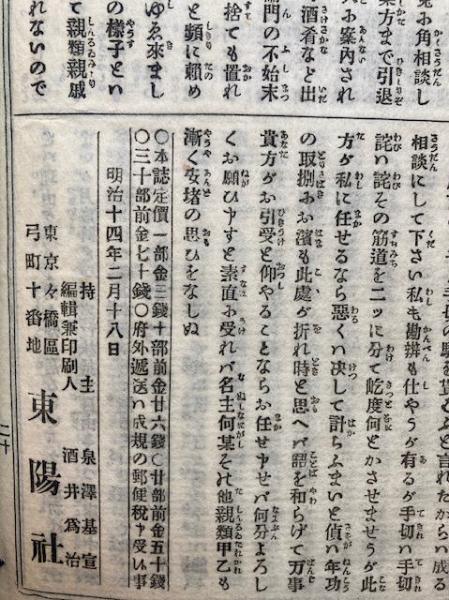 兎お角相談し
案方まで引退
お案内され
酒肴など出
門の不始末
捨ても置れ
と頻に頼め
ゆゑ來まし
の様子とい
て親類親戚
れないので
相談にして下さい私も勘辨も仕やうが有るが手切ハ手切
詫ハ詫その筋道を二ツに分て屹度何とかさせませうが此
方が私に任せるなら悪くハ决して計らふまいと偵ハ年功
の取捌お濱も此處が折れ時と思へバ語を和らげて万事
貴方がお引受と仰やることならお任せ申せバ何分よろし
くお願ひ申すと素直お受れバ名主何某その他親類甲乙も
漸く安堵の思ひをなしぬ
○本誌定價一部金三錢十部前金廿六錢○廿部前金五十錢
○三十部前金七十錢○府外遞送ハ成規の郵便税申受候事
明治十四年二月十八日
持主 泉澤基宣
編輯兼印刷人 酒井爲治
東京々橋區
弓町十番地
東陽社